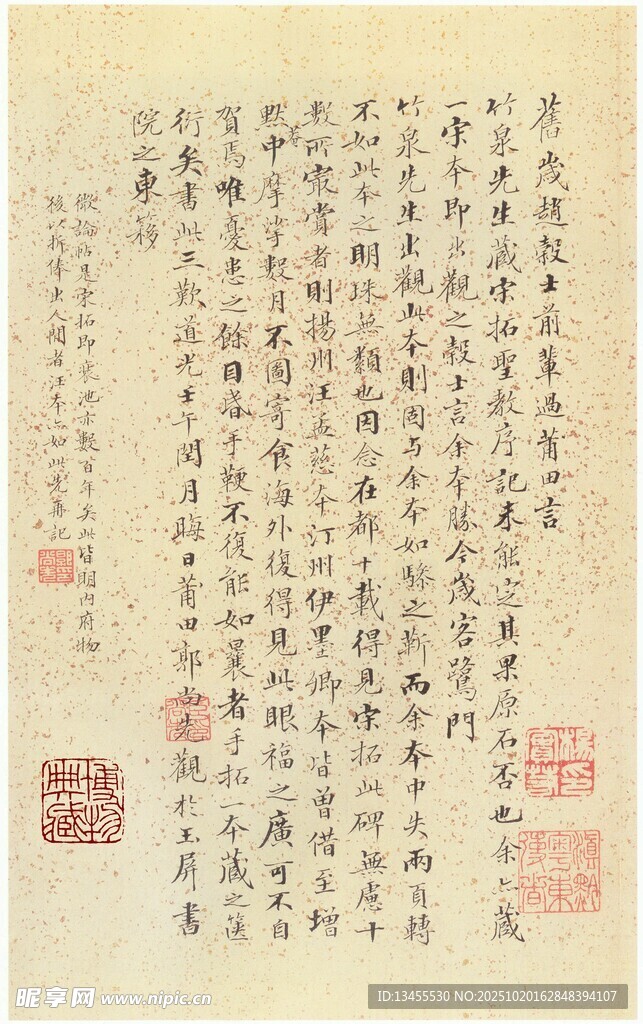 舊歲趙穀士前輩過莆田言
竹泉先生藏宋拓聖教序記未能定其果原石否也余亦藏
一宋本即出觀之穀士言余本勝今歲客鷺門
竹泉先生出觀此本則固与余本如驂之靳而余本中失兩頁轉
不如此本之明珠無纇也因念在都十載得見宋拓此碑無慮十
數所最賞者則揚州汪孟慈本汀州伊墨卿本皆曾借至增
默菴中摩挲數月不圖寄食海外復得見此眼福之廣可不自
賀焉唯憂患之餘目昏手鞕不復能如曩者手拓一本藏之篋
衍矣書此三歎道光壬午閏月晦日莆田郭尚先觀於玉屏書
院之東簃
微論帖是宋拓即襄池亦數百年矣此皆明内府物
後以拆俸出人間者汪本亦如此先再記
博物
典藏
昵享网 www.nipic.cn
ID:13455530 NO:20251020162848394107